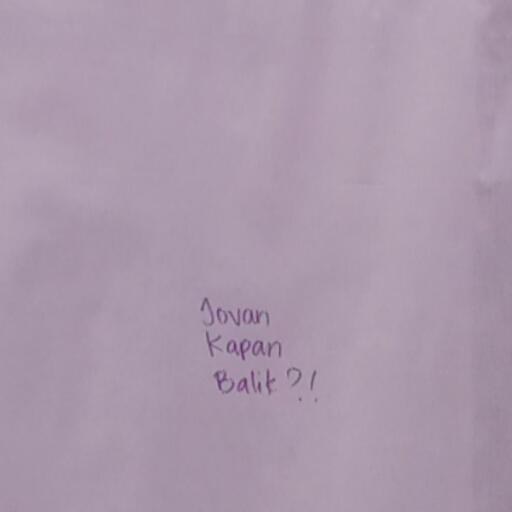 Jovan
Kapan
Balik?!